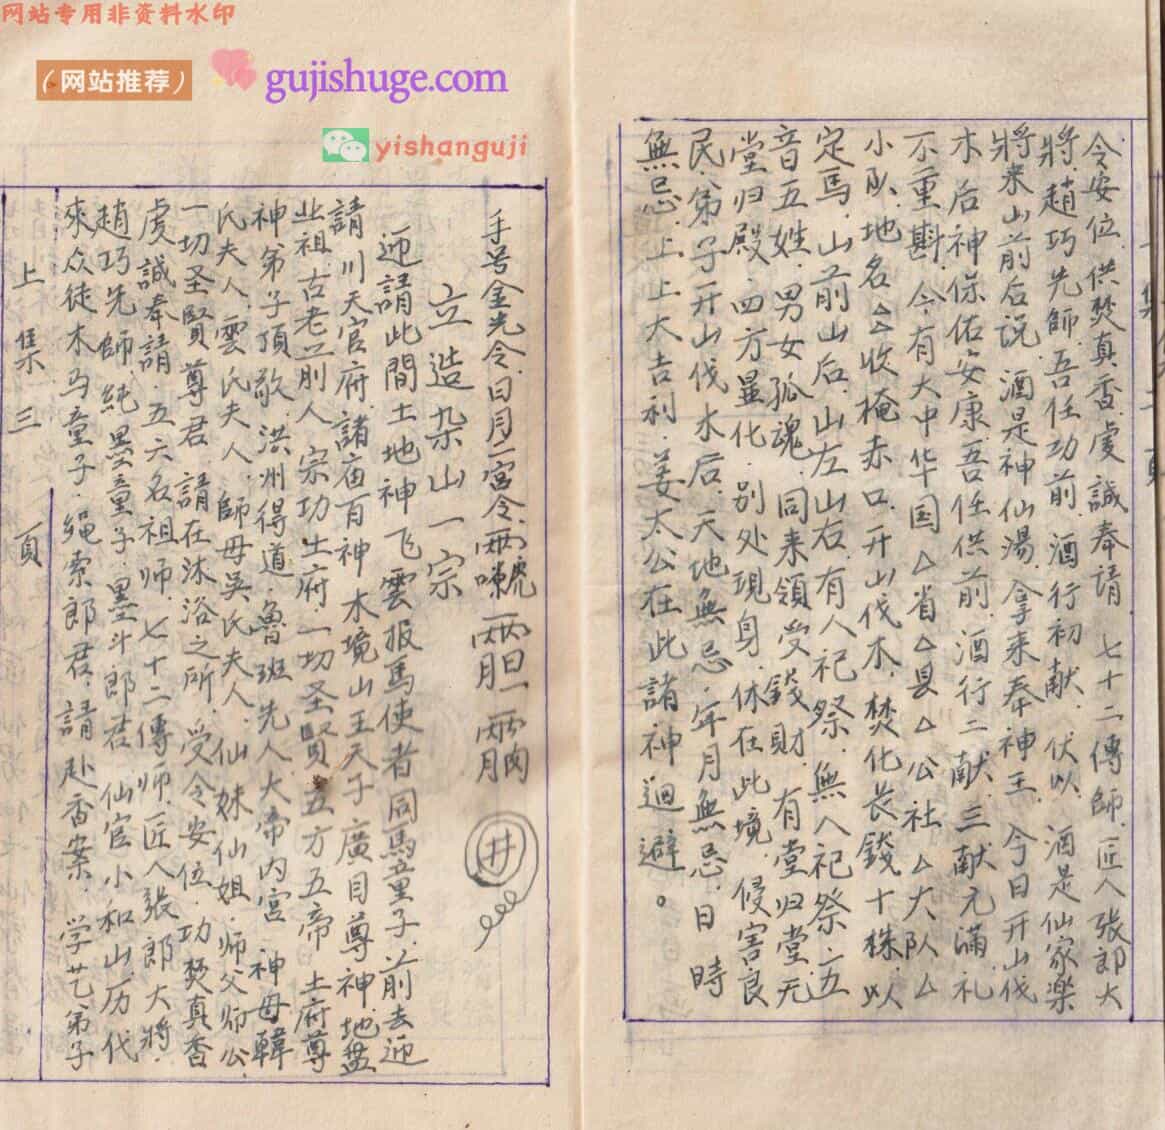 网站专用非资料水印
(网站推荐)
gujishuge.com
yishanguji
令安位.供焚真香.虔誠奉請 七十二傳師.匠人张郎大
將.趙巧先師.吾任功前.酒行初献.伏以.酒是仙家樂
將来山前后说.酒是神仙湯.拿来奉神王.今日开山伐
木后神保佑安康.吾任供前.酒行二献.三献元滿.礼
不重斟.今有大中华国△省△县△公社△大队△
小队.地名△收掩赤口.开山伐木.焚化长錢十株.以
定馬.山前山后.山左山右.有人祀祭.無人祀祭.五
音五姓.男女孤魂.同来領受錢財.有堂归堂.无
堂归殿.四方显化.别处現身.休在此境.侵害良
民.弟子开山伐木后.天地無忌.年月無忌.日時
無忌.上上大吉利.姜太公在此諸神迴避。
手号金光令.日月二宫令
立造杂山一宗
迎請此間土地神飞雲报馬使者同馬童子.前去迎
請川天官府.諸庙百神.木境山王天子.廣目尊神.地盘
业祖古老前人.宗功土府.一切圣賢.五方五帝.土府尊
神.弟子頂敬.洪州得道.魯班先人大帝内宫.神母韓
氏夫人.雲氏夫人.師母吴氏夫人.仙妹仙姐.师父师公.
一切圣賢尊君.請在沐浴之所.受令安位.功焚真香
虔誠奉請.五六名祖师.七十二傳师.匠人張郎大將.
趙巧先師.純墨童子.墨斗郎君.仙官小和山.历代
來众徒木马童子.绳索郎君.請赴香案.学艺弟子
上集三頁